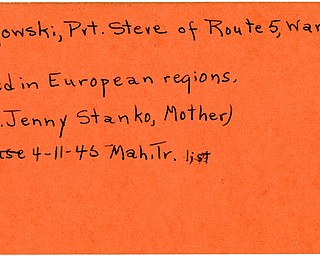 owski, Pvt. Steve of Route 5, War
ed in European regions.
. Jenny Stanko, Mother)
4-11-45 Mah. Tr. list